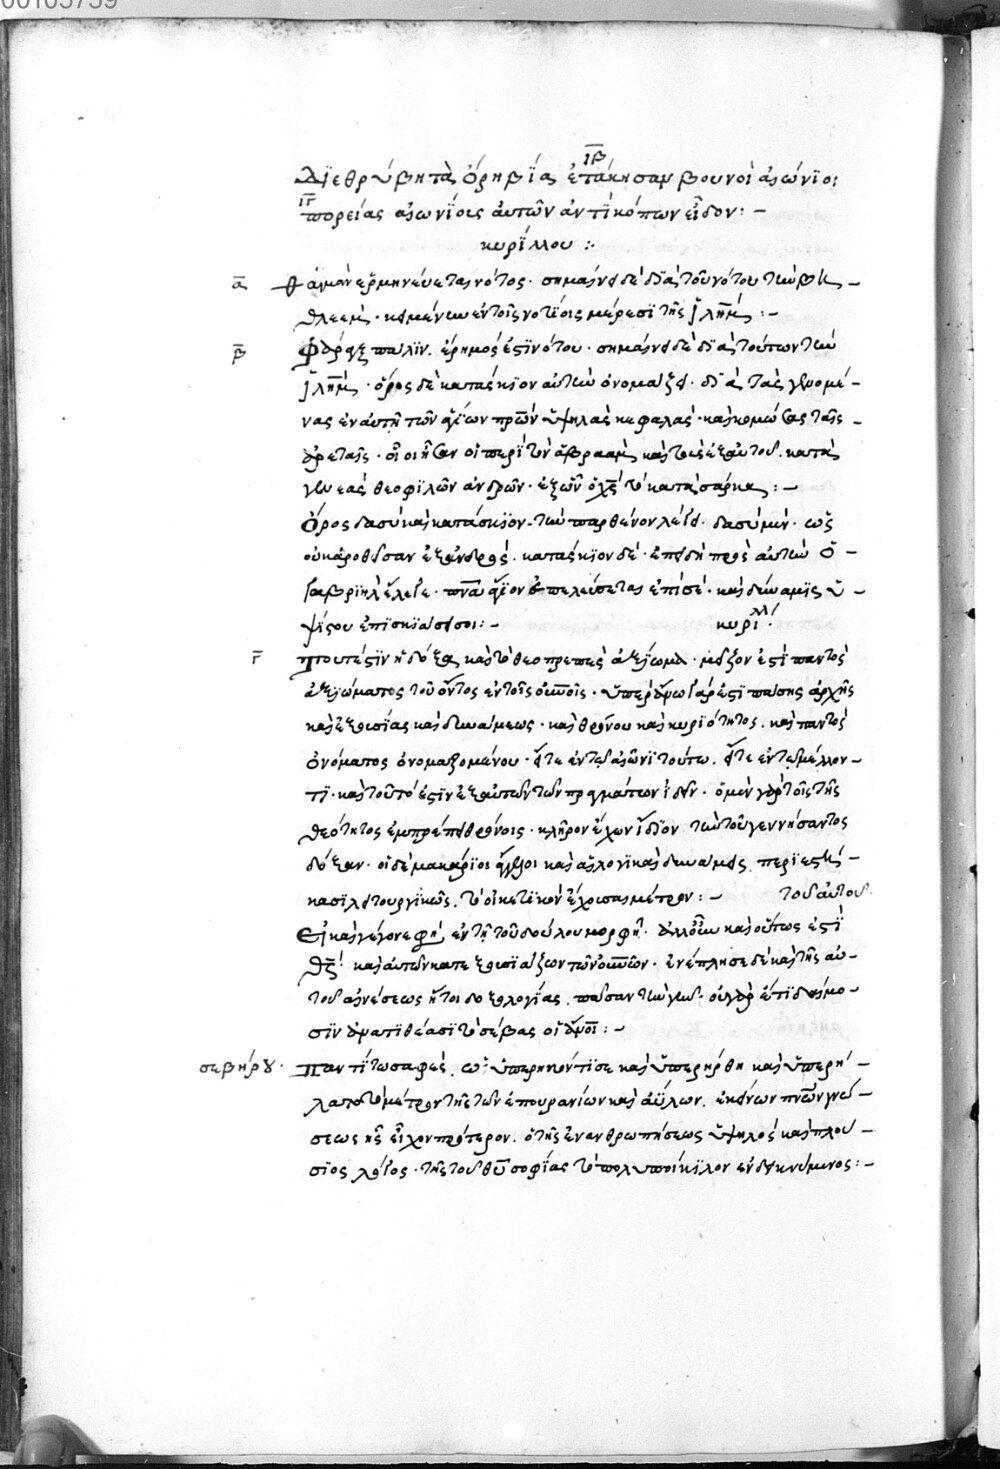 00105759
ΙΒ
Διεθρύβη τὰ ὄρη βίᾳ ἐτάκησαν βουνοὶ αἰώνιοι
ΙΓ
πορείας αἰωνίοις αὐτῶν ἀντὶ κόπων εἶδον: –
κυρίλλου :·
α θαιμὰν ἑρμηνεύεται νότος· σημαίνει δὲ διὰ τοῦ νότου τὴν βη –
θλεὲμ· κειμένην ἐν τοῖς νοτίοις μέρεσι τῆς ἱλημ: –
β Φαρὰγξ πάλιν. ἔρημός ἐστι νότου· σημαίνει δὲ διὰ τούτων τὴν
ἱλημ· ὄρος δὲ κατάσκιον αὐτὴν ὀνομάζει· διὰ τὰς γενομέ –
νας ἐν αὐτῇ τῶν ἁγίων πρων ὑψηλὰς κεφαλὰς· καὶ κομώσας ταῖς –
ἀρεταῖς· οἷοι ἦσαν οἱ περὶ τὸν ἀβραὰμ καὶ τοὺς ἐξ αὐτοῦ. κατὰ
γενεὰς θεοφιλῶν ἀνδρῶν· ἐξ ὧν ὁ χς τὸ κατὰ σάρκα: –
Ὄρος δασὺ καὶ κατάσκιον. τὴν παρθένον λέγει· δασὺ μὲν· ὡς
οὐκ ἀροθεῖσαν ἐξ ἀνδρὸς. κατάσκιον δὲ· ἐπειδὴ πρὸς αὐτὴν ὁ –
γαβριὴλ ἔλεγε· πνα ἅγιον ἐπελεύσεται ἐπὶ σὲ· καὶ δύναμις ὑ –
ψίστου ἐπισκιάσει σοι: – κυρίλλ·
γ Τοῦτ' ἐστὶν ἡ δόξα καὶ τὸ θεοπρεπὲς ἀξίωμα· μεῖζον ἐστὶ παντὸς
ἀξιώματος τοῦ ὄντος ἐν τοῖς οὐνοῖς· ὑπεράνω γάρ ἐστι πάσης ἀρχῆς
καὶ ἐξουσίας καὶ δυνάμεως· καὶ θρόνου καὶ κυριότητος. καὶ παντὸς
ὀνόματος ὀνομαζομένου· εἴτε ἐν τῷ αἰῶνι τούτω. εἴτε ἐν τῷ μέλλον –
τι· καὶ τοῦτό ἐστιν ἐξ αὐτῶν τῶν πραγμάτων ἰδεῖν· ὁ μὲν γὰρ τοῖς τῆς
θεότητος ἐμπρέπει θρόνοις· κλῆρον ἔχων ἴδιον τὴν τοῦ γεννήσαντος
δόξαν· οἱ δὲ μακάριοι ἄγγελοι καὶ αἱ λογικαὶ δυνάμεις. περιεστᾶ –
κασι λειτουργικῶς. τὸ οἰκετικὸν ἔχουσαι μέτρον: – τοῦ αὐτοῦ·
Εἰ καὶ γέγονε φησὶ ἐν τῇ τοῦ δούλου μορφῇ· ἀλλ' οὖν καὶ οὕτως ἐστὶ
θς· καὶ αὐτῶν κατεξουσιάζων τῶν οὐνῶν· ἐνέπλησε δὲ καὶ τῆς αὐ –
τοῦ αἰνέσεως ἤτοι δοξολογίας. πᾶσαν τὴν γῆν· οὐ γὰρ ἔτι δαίμο –
σιν ἀνατιθέασι τὸ σέβας οἱ ἄνοι: –
σεβήρου· Παντί τω σαφὲς. ὡς ὑπερηκόντισε καὶ ὑπερήρθη καὶ ὑπερή –
λατο τὸ μέτρον τῆς τῶν ἐπουρανίων καὶ ἀΰλων. ἐκείνων πνων γνώ –
σεως ἧς εἶχον πρότερον. ὁ τῆς ἐνανθρωπήσεως ὑψηλὸς καὶ πλού –
σιος λόγος· τῆς τοῦ θυ σοφίας τὸ πολυποίκιλον ἐνδεικνύμενος: –